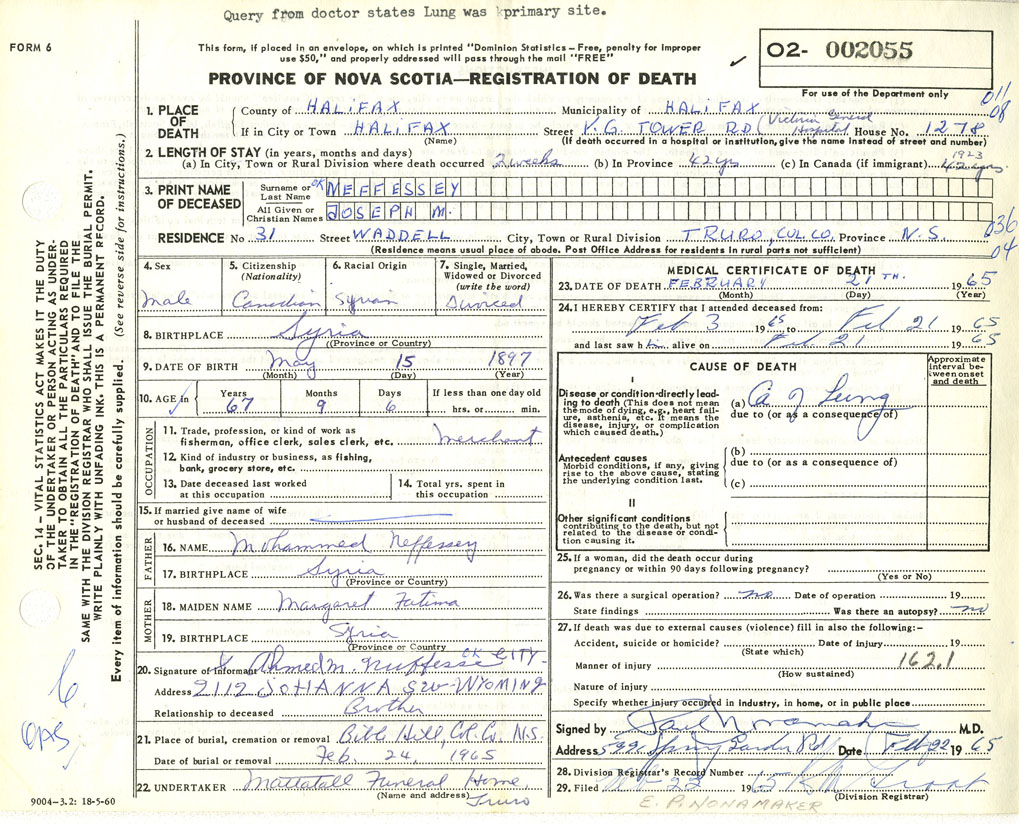 Query from doctor states Lung was primary site.
FORM 6
This form, if placed in an envelope, on which is printed "Dominion Statistics – Free, penalty for improper
use $50," and properly addressed will pass through the mail "FREE"
PROVINCE OF NOVA SCOTIA—REGISTRATION OF DEATH
02- 002055
For use of the Department only
011
08
1. PLACE OF DEATH
County of HALIFAX Municipality of HALIFAX
(Victoria General Hospital)
If in City or Town HALIFAX Street V.G. TOWER RD House No. 1278
(Name) (If death occurred in a hospital or institution, give the name instead of street and number)
2. LENGTH OF STAY (in years, months and days)
(a) In City, Town or Rural Division where death occurred 2 weeks (b) In Province 42 yrs (c) In Canada (if immigrant) 1923
3. PRINT NAME OF DECEASED
Surname or Last Name OK MEFFESSEY
All Given or Christian Names JOSEPH M.
036
04
RESIDENCE No 31 Street WADDELL City, Town or Rural Division TRURO, COL. CO. Province N.S.
(Residence means usual place of abode. Post Office Address for residents in rural parts not sufficient)
4. Sex
Male
5. Citizenship (Nationality)
Canadian
6. Racial Origin
Syrian
7. Single, Married, Widowed or Divorced (write the word)
Divorced
8. BIRTHPLACE Syria
(Province or Country)
9. DATE OF BIRTH May 15 1897
(Month) (Day) (Year)
10. AGE in Years Months Days If less than one day old
67 9 6 hrs. or min.
OCCUPATION
11. Trade, profession, or kind of work as
fisherman, office clerk, sales clerk, etc. Merchant
12. Kind of industry or business, as fishing,
bank, grocery store, etc.
13. Date deceased last worked
at this occupation
14. Total yrs. spent in
this occupation
15. If married give name of wife
or husband of deceased
FATHER
16. NAME Mohammed Neffessey
17. BIRTHPLACE Syria
(Province or Country)
MOTHER
18. MAIDEN NAME Margaret Fatima
19. BIRTHPLACE Syria
(Province or Country)
20. Signature of Informant Ahmed M. Nuffesse OK CITY-
Address 2112 JOHANNA SW-WYOMING
Relationship to deceased Brother
21. Place of burial, cremation or removal Bible Hill, Col. Co. N.S.
Date of burial or removal Feb. 24, 1965
22. UNDERTAKER Mattatall Funeral Home,
(Name and address) Truro
9004–3.2: 18-5-60
MEDICAL CERTIFICATE OF DEATH
23. DATE OF DEATH FEBRUARY 21TH. 1965
(Month) (Day) (Year)
24. I HEREBY CERTIFY that I attended deceased from:
Feb 3 1965 to Feb 21 1965
and last saw him alive on Feb 21 1965
CAUSE OF DEATH
Approximate interval between onset and death
I
Disease or condition directly leading to death (This does not mean the mode of dying, e.g., heart failure, asthenia, etc. It means the disease, injury, or complication which caused death.)
(a) Ca of Lung
due to (or as a consequence of)
Antecedent causes
Morbid conditions, if any, giving rise to the above cause, stating the underlying condition last.
(b)
due to (or as a consequence of)
(c)
II
Other significant conditions
contributing to the death, but not related to the disease or condition causing it.
25. If a woman, did the death occur during
pregnancy or within 90 days following pregnancy?
(Yes or No)
26. Was there a surgical operation? no Date of operation 19
State findings Was there an autopsy? no
27. If death was due to external causes (violence) fill in also the following:–
Accident, suicide or homicide? Date of injury 19
(State which)
Manner of injury 162.1
(How sustained)
Nature of injury
Specify whether injury occurred in industry, in home, or in public place
Signed by M.D.
Address 5991 Spring Garden Rd Date Feb 22 1965
28. Division Registrar's Record Number
29. Filed 19
(Division Registrar)
E. P. NONAMAKER
SEC. 14 – VITAL STATISTICS ACT MAKES IT THE DUTY
OF THE UNDERTAKER OR PERSON ACTING AS UNDER-
TAKER TO OBTAIN ALL THE PARTICULARS REQUIRED
IN THE "REGISTRATION OF DEATH" AND TO FILE THE
SAME WITH THE DIVISION REGISTRAR WHO SHALL ISSUE THE BURIAL PERMIT.
WRITE PLAINLY WITH UNFADING INK. THIS IS A PERMANENT RECORD.
Every item of information should be carefully supplied. (See reverse side for instructions.)